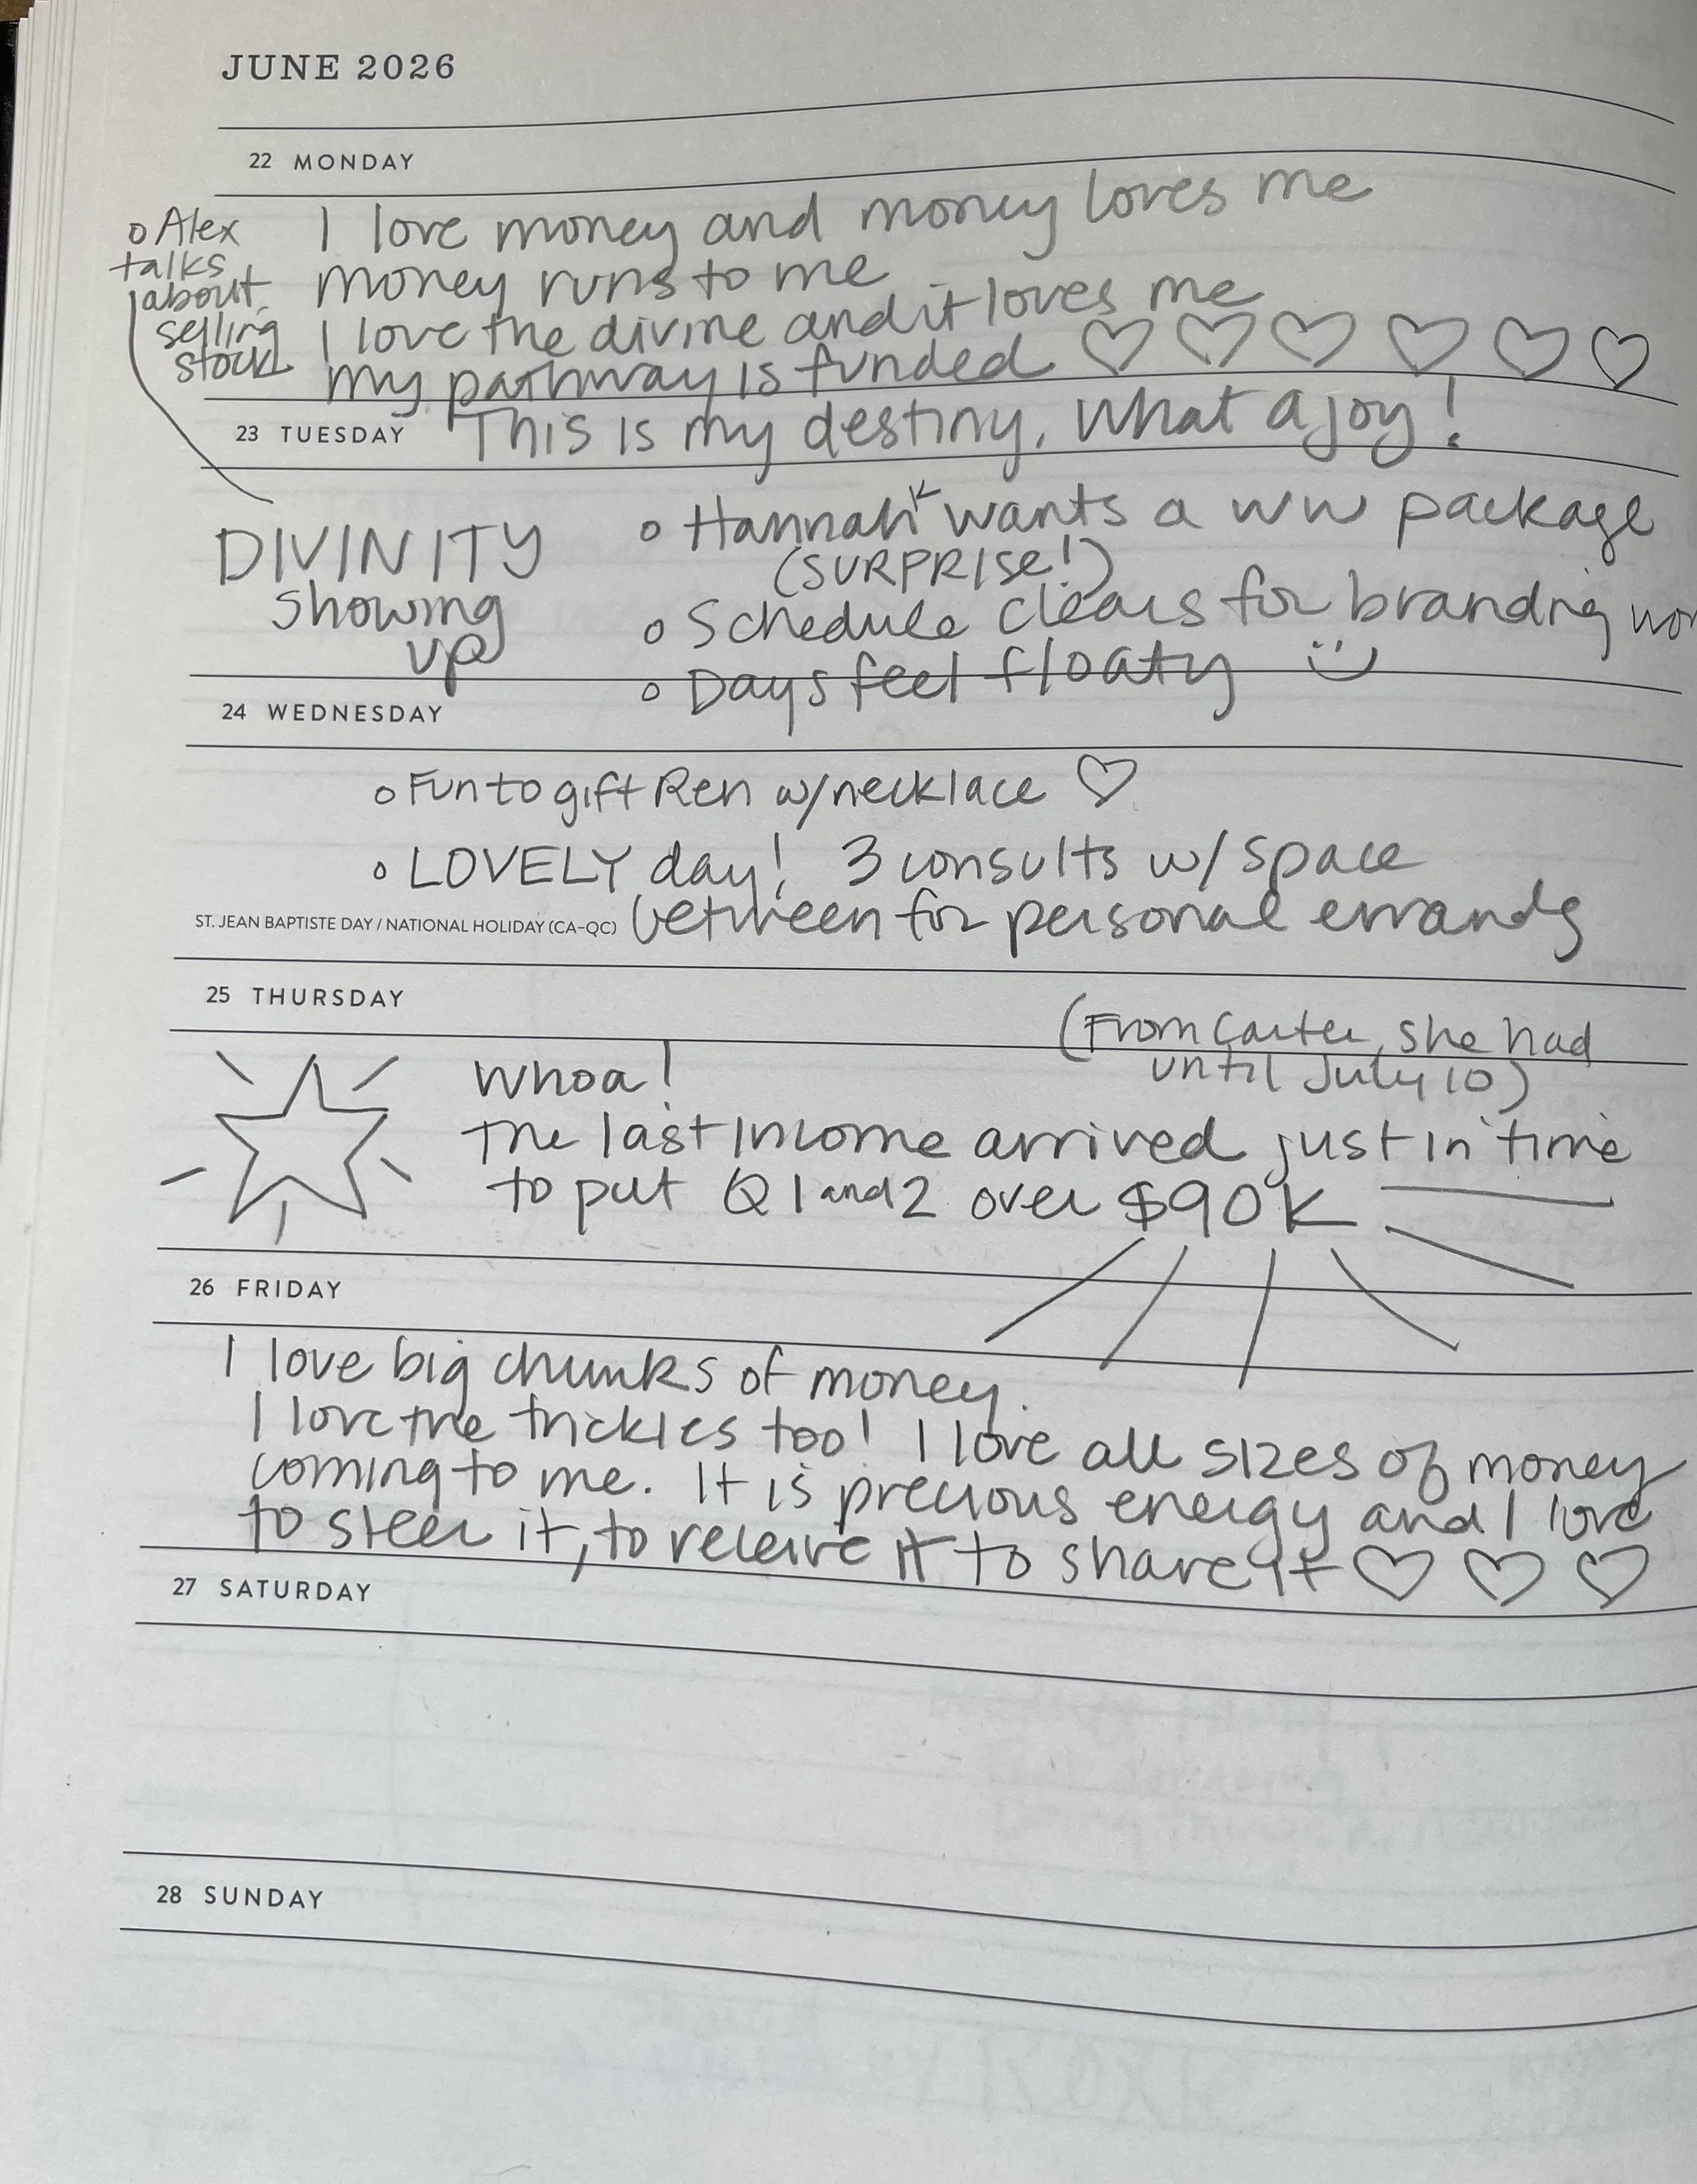 JUNE 2026
22 MONDAY
o Alex
talks
about
selling
stock
I love money and money loves me
money runs to me
I love the divine and it loves me
my pathway is funded ♡ ♡ ♡ ♡ ♡ ♡
23 TUESDAY
This is my destiny. What a joy!
DIVINITY
showing
up
o Hannah K wants a WW package
(SURPRISE!)
o Schedule clears for branding
o Days feel floaty
24 WEDNESDAY
o Fun to gift Ren w/necklace ♡
o LOVELY day! 3 consults w/ space
between for personal errands
ST. JEAN BAPTISTE DAY / NATIONAL HOLIDAY (CA-QC)
25 THURSDAY
(From Carter, she had
until July 10)
Whoa!
The last income arrived just in time
to put Q1 and 2 over $90K
26 FRIDAY
I love big chunks of money.
I love the trickles too! I love all sizes of money
coming to me. It is precious energy and I love
to steer it, to receive it to share it ♡ ♡ ♡
27 SATURDAY
28 SUNDAY